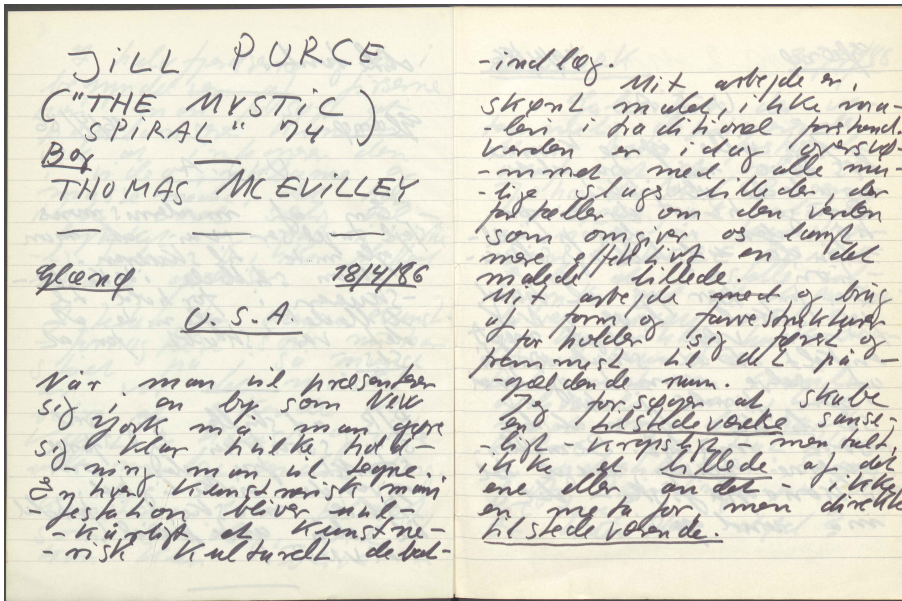 JILL PURCE
("THE MYSTIC
SPIRAL" '74)
Bog
THOMAS MCEVILLEY
Glænø 18/4/86
U.S.A.
Når man vil præsenterer
sig i en by som New
York må man gøre
sig klar hvilke hold-
-ning man vil tegne.
En hver kunstnerisk mani
-festation bliver uvil-
-kårligt et kunstne-
-risk kulturelt debat-
-indlæg.
Mit arbejde er,
skønt malet, ikke ma-
-leri i traditionel forstand.
Verden er idag oversvø-
-mmet med alle mu-
-lige slags billeder der
fortæller om den verden
som omgiver os langt
mere effektivt en det
malede billede.
Mit arbejde med og brug
af form og farvestrukturer
forholder sig først og
fremmest til det på-
-gældende rum.
Jeg forsøger at skabe
en tilstedeværelse sanse-
-ligt - kropsligt - mentalt,
ikke et billede af det
ene eller andet - ikke
en metafor men direkte
tilstedeværende.